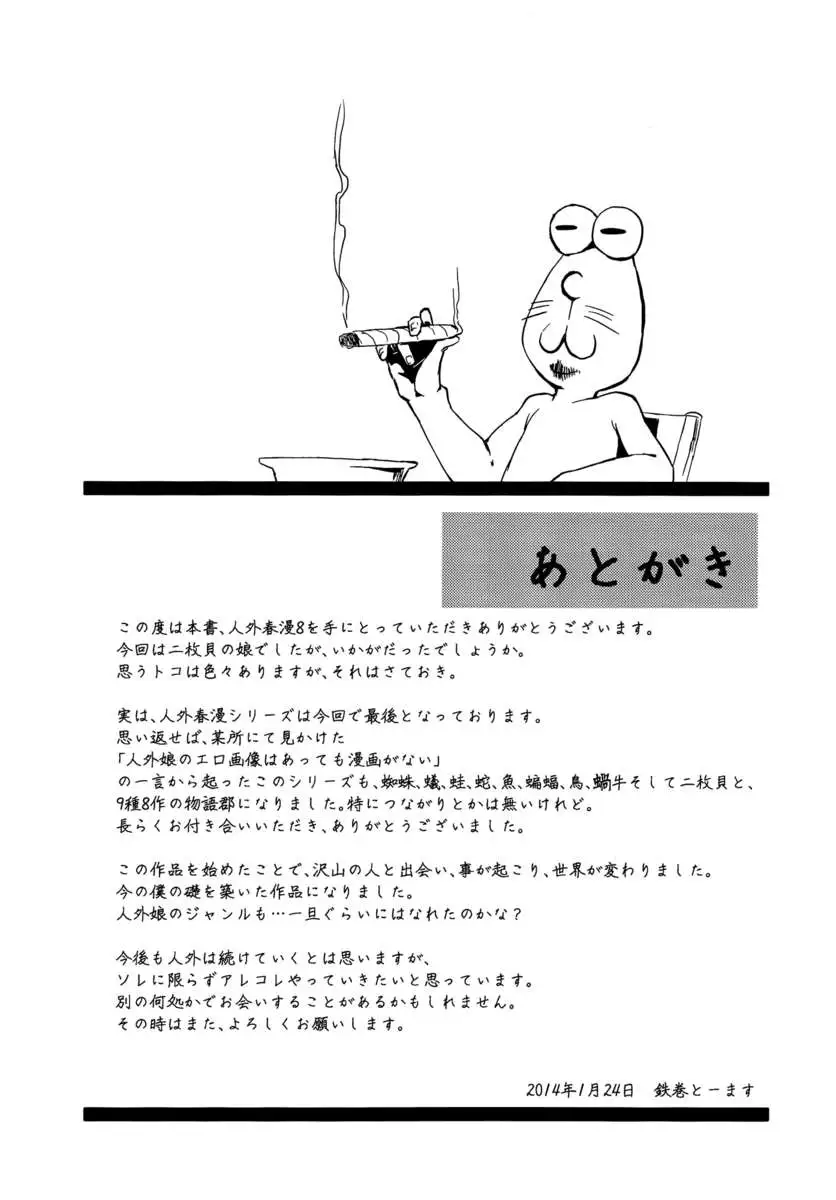 あとがき
この度は本書、人外春漫8を手にとっていただきありがとうございます。
今回は二枚貝の娘でしたが、いかがだったでしょうか。
思うトコは色々ありますが、それはさておき。
実は、人外春漫シリーズは今回で最後となっております。
思い返せば、某所にて見かけた
「人外娘のエロ画像はあっても漫画がない」
の一言から起ったこのシリーズも、蜘蛛、蟻、蛙、蛇、魚、蝙蝠、鳥、蝸牛そして二枚貝と、
9種8作の物語郡になりました。特につながりとかは無いけれど。
長らくお付き合いいただき、ありがとうございました。
この作品を始めたことで、沢山の人と出会い、事が起こり、世界が変わりました。
今の僕の礎を築いた作品になりました。
人外娘のジャンルも…一旦ぐらいにはなれたのかな？
今後も人外は続けていくとは思いますが、
ソレに限らずアレコレやっていきたいと思っています。
別の何処かでお会いすることがあるかもしれません。
その時はまた、よろしくお願いします。
2014年1月24日 鉄巻とーます